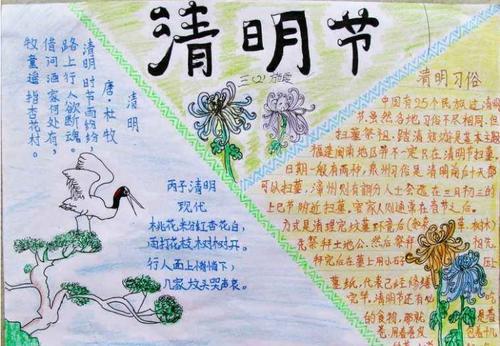 清明节
三(2)
清明
唐·杜牧
清明时节雨纷纷
路上行人欲断魂。
借问酒家何处有,
牧童遥指杏花村。
丙子清明
现代
桃花粉红杏花白,
雨打花枝树树开。
行人面上悄悄下,
几家坟头哭声哀。
清明习俗
中国有25个民族过清明
节,虽然各地习俗不尽相同,但
扫墓祭祖、踏清郊游是基本主题
福建闽南地区并不一定只在清明节扫墓
日期一般有两种,泉州习俗是清明前后十天都
可以扫墓,漳州则有部分人士会选在三月初三的
上巳节附近扫墓,客家人则通常在春节之后。
方式是清理完坟墓野草后
先祭拜土地公,然后祭拜
拜完后在墓上用小石
墓纸,代表已经修缮
完毕,清明节还有
的食物,那就是